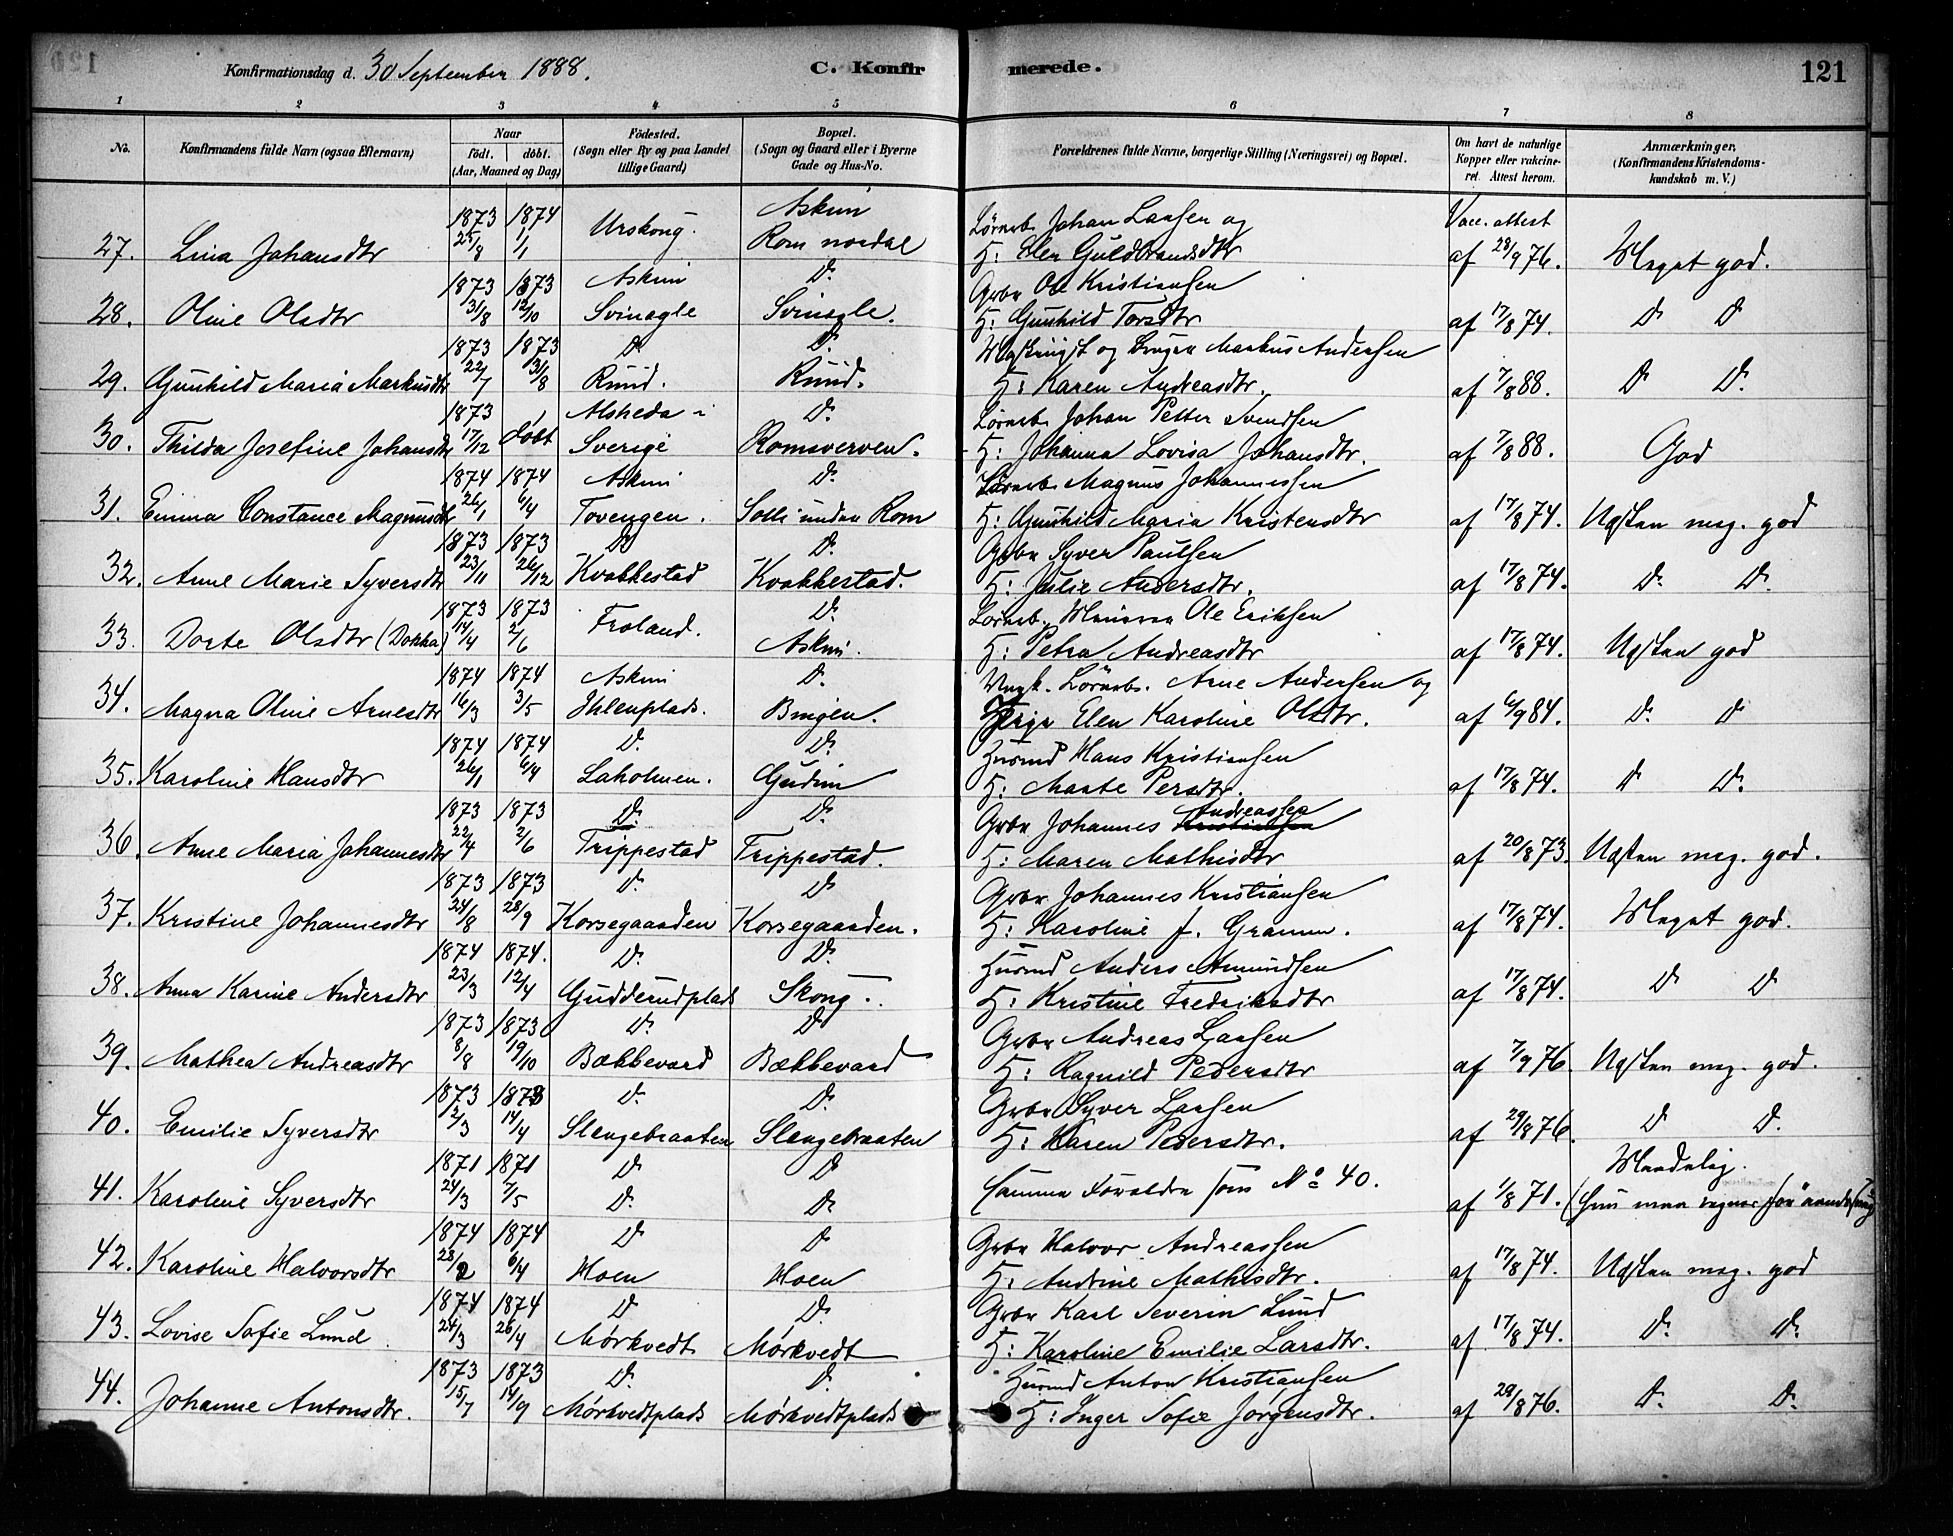 Konfirmationsdag d. 30 September 1888. C. Konfirmerede. 121
1 2 3 4 5 6 7 8
No. Konfirmandens fulde Navn (ogsaa Efternavn) Naar födt. döbt. (Aar, Maaned og Dag) Födested. (Sogn eller By og paa Landet tillige Gaard) Bopæl. (Sogn og Gaard eller i Byerne Gade og Hus-No. Forældrenes fulde Navne, borgerlige Stilling (Næringsvei) og Bopæl. Om havt de naturlige Kopper eller vakcineret. Attest herom. Anmærkninger. (Konfirmandens Kristendomskundskab m. V.)
1873 1874 Urskoug. Askim Lørnarb. Johan Larsen og Vacc. attest
27. Lina Johansdtr 25/8 1/1 Rom nordal H: Elen Guldbrandsdtr af 28/9 76. Meget god.
1873 1873 Askim D. Grbr Ole Kristiansen
28. Oline Olsdtr 31/8 12/10 Svinøgle Svinøgle. H: Gunhild Torsdtr af 17/8 74. D D
1873 1873 D. D. og Markus Andersen
29. Gunhild Maria Markusdtr 22/7 31/8 Ruud. Ruud. H: Karen Andreasdtr. af 7/8 88. D D.
1873 Alsheda i D. Lørnarb Johan Petter Svendsen
30. Thilda Josefine Johansdtr 17/12 döbt Sverige Romsverven. H: Johanna Lovisa Johansdtr. af 7/8 88. God
1874 1874 Askim D. Lørnarb. Magnus Johannessen
31. Emma Constance Magnusdtr 26/1 6/4 Tovengen. Solli under Rom H: Gunhild Maria Kristensdtr af 17/8 74. Næsten meg. god
1873 1873 D D. Grbr Syver Paulsen
32. Anne Marie Syversdtr 23/11 26/12 Kvakkestad Kvakkestad. H: Julie Andersdtr. af 17/8 74. D. D.
1873 1873 Froland. D. Lørnarb. Ole Eriksen
33. Dorte Olsdtr (Dokka) 14/4 2/6 Askim. H: Petra Andreasdtr af 17/8 74. Næsten god
1874 1874 Askim D. Ungk. Lörnarb. Arne Andersen og
34. Magna Oline Arnesdtr 16/3 3/5 Ihlenplads. Bingen. Pige Elen Karoline Olsdtr. af 6/9 84. D. D
1874 1874 D. D. Husmd Hans Kristiansen
35. Karoline Hansdtr 26/1 6/4 Laholmen. Gudim H: Marte Persdtr. af 17/8 74. D D.
1873 1873 D. D. Grbr Johannes Kristiansen Andreassen
36. Anne Maria Johannesdtr 22/4 2/6 Trippestad Trippestad. H: Maren Mathisdtr af 20/8 73. Næsten meg. god.
1873 1873 D. D Grbr Johannes Kristiansen
37. Kristine Johannesdtr 24/8 28/9 Korsegaarden Korsegaarden. H: Karoline f. Gramm. af 17/8 74. Meget god.
1874 1874. D. D. Husmd Anders Amundsen
38. Anna Karine Andersdtr 23/3 12/4 Gudderudplads Skoug. H: Kristine Fredriksdtr af 17/8 74. D D
1873 1873 D. D Grbr Andreas Larsen
39. Mathea Andreasdtr 8/8 19/10 Bækkevard Bækkevard H: Ragnild Pedersdtr af 7/9 76 Næsten meg. god.
1873 1873 D. D. Grbr Syver Larsen
40. Emilie Syversdtr 2/3 14/4 Slengebraaten Slengebraaten H: Karen Pedersdtr. af 29/8 76. D D.
1871 1871 D D Maadelig.
41. Karoline Syversdtr 24/3 7/5 D. D. Samme Forældre som No 40. af 1/8 71. (hun maa regnes for
1874 1874 D D Grbr Halvor Andreassen
42. Karoline Halvorsdtr 28/2 6/4 Hoen Hoen H: Andrine Mathisdtr. af 17/8 74. Næsten meg. god
1874 1874 D D. Grbr Karl Severin Lund
43. Lovise Sofie Lund. 24/3 26/4 Mørkvedt Mørkvedt H: Karoline Emilie Larsdtr. af 17/8 74. D. D.
1873 1873 D. D. Husmd Anton Kristiansen
44. Johanne Antonsdtr. 15/7 14/9 Mørkvedtplads Mørkvedtplads H: Inger Sofie Jørgensdtr. af 29/8 76. D. D.